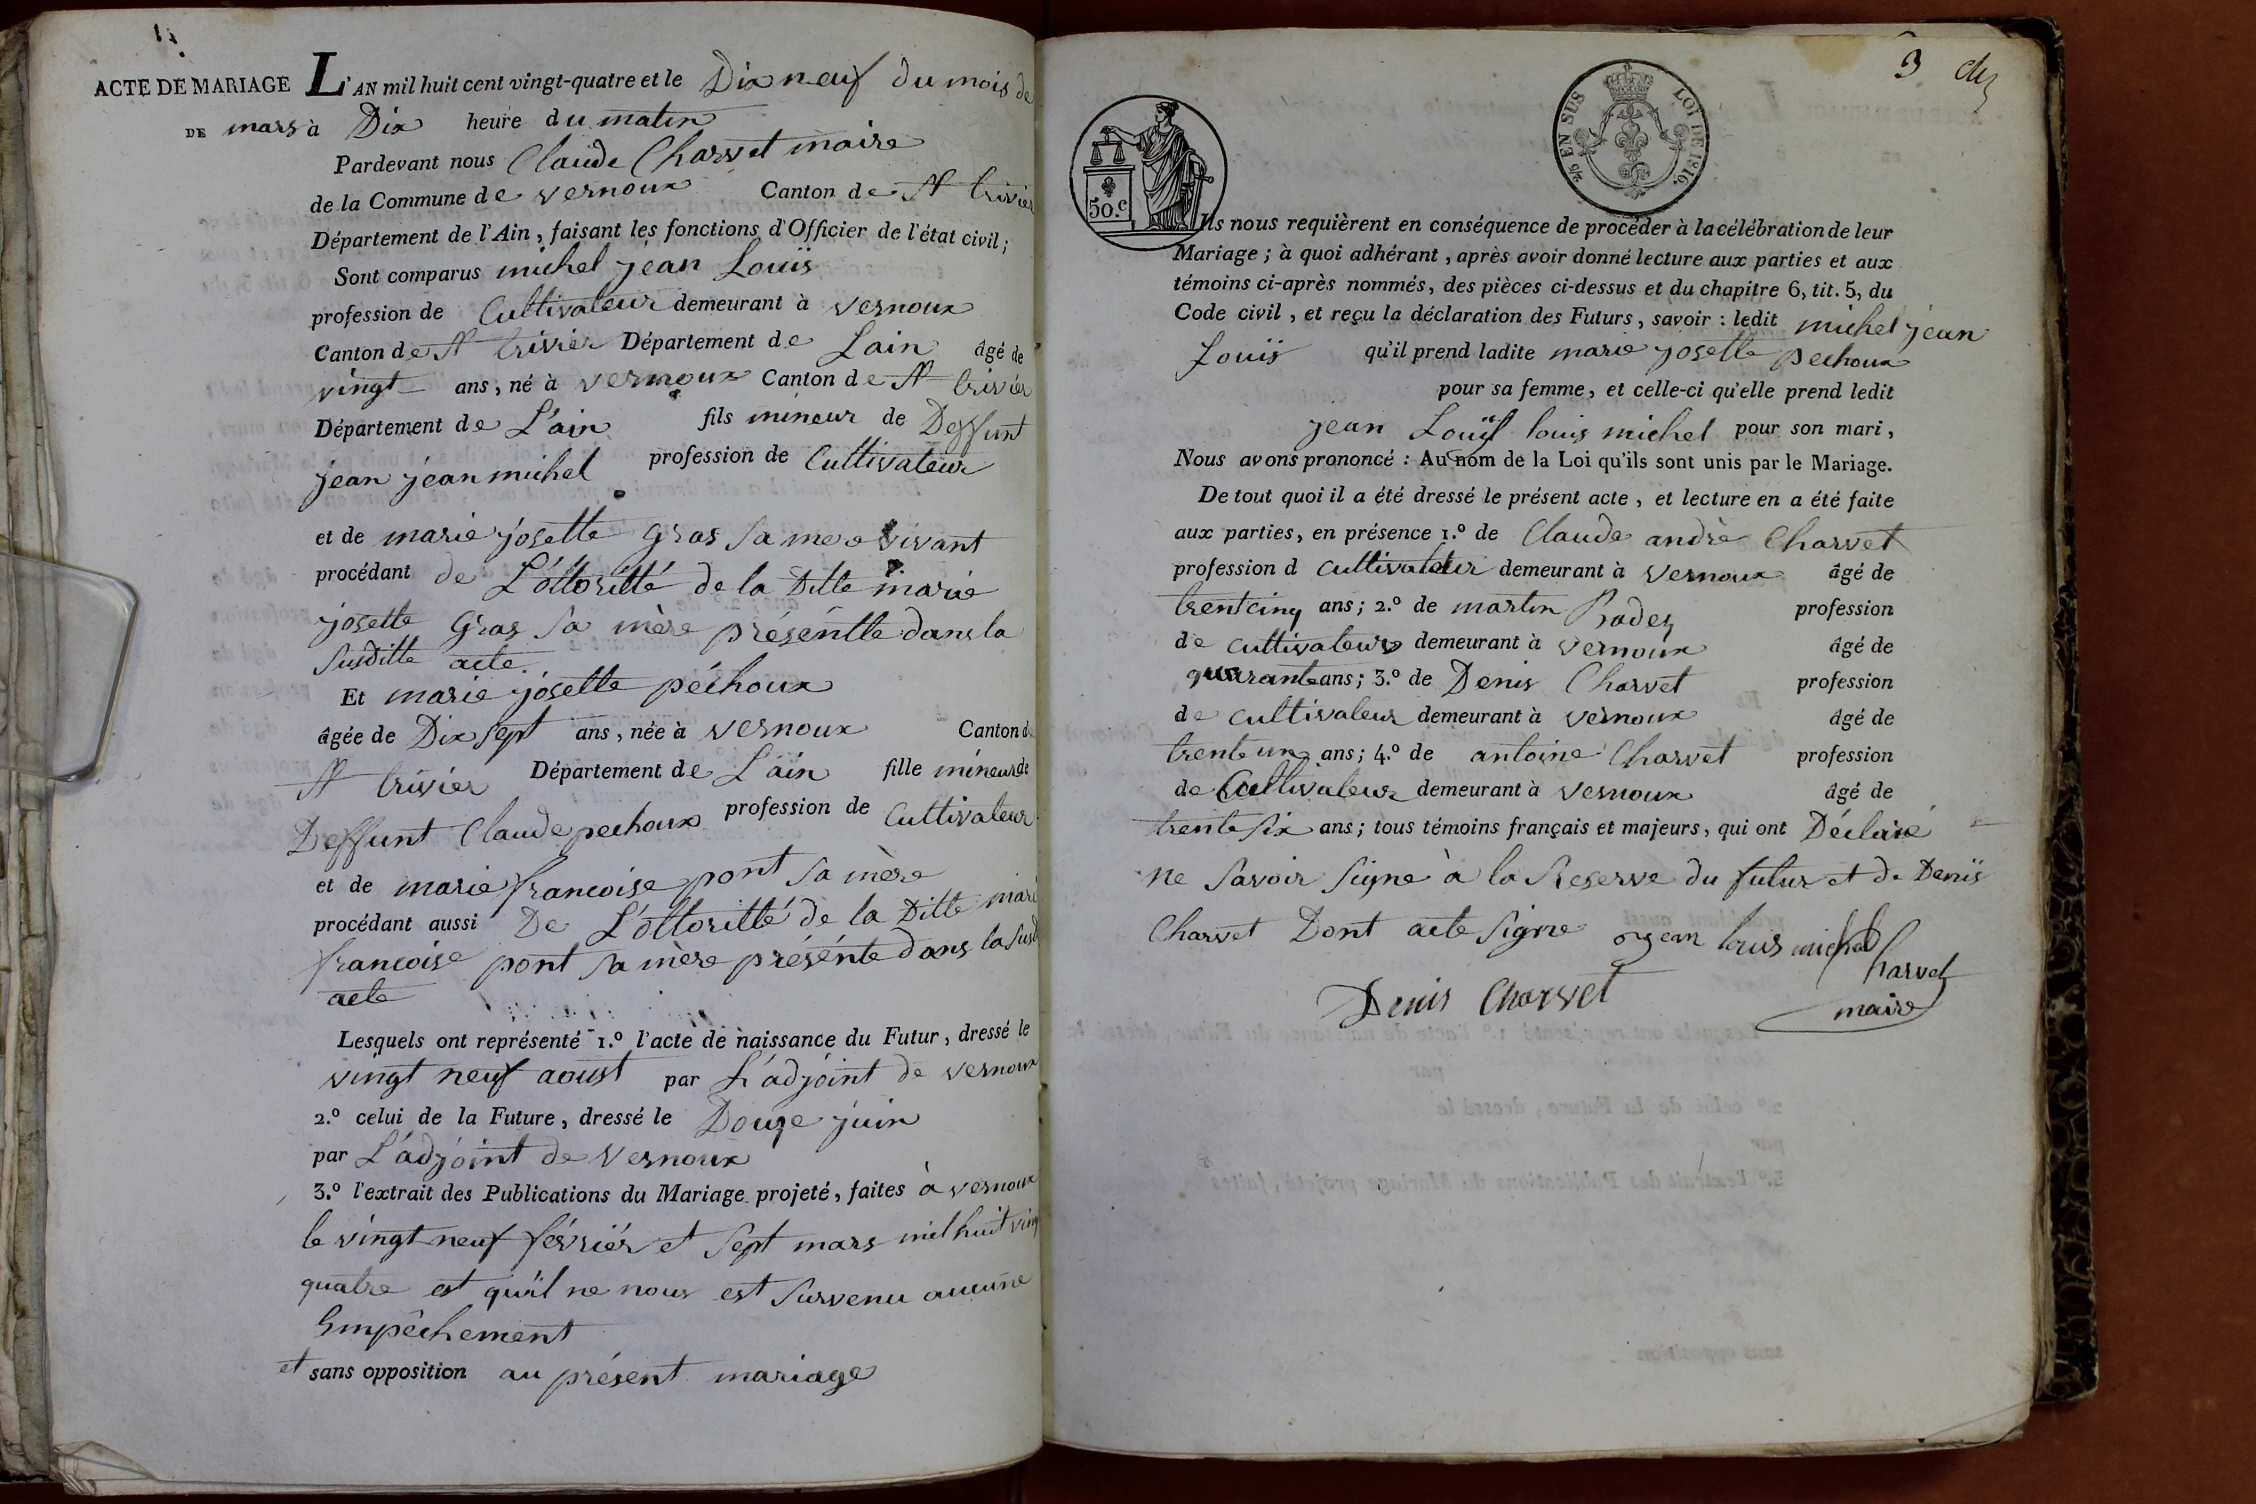 ACTE DE MARIAGE L'AN mil huit cent vingt-quatre et le Dix neuf du mois de
DE mars à Dix heure du matin
Pardevant nous Claude Charvet maire
de la Commune de vernoux Canton de St trivier
Département de l'Ain, faisant les fonctions d'Officier de l'état civil;
Sont comparus michel jean Louïs
profession de Cultivateur demeurant à vernoux
Canton de St trivier Département de Lain âgé de
vingt ans, né à vernoux Canton de St trivier
Département de L'ain fils mineur de Deffunt
jean jean michel profession de Cultivateur
et de marie josette gros Sa mere vivant
procédant de L'ottoritté de la Ditte marie
josette Gros Sa mère présentte dans la
Susditte acte
Et marie josette péchoux
âgée de Dix Sept ans, née à vernoux Canton de
St trivier Département de L'ain fille mineur de
Deffunt Claude pechoux profession de Cultivateur
et de marie francoise pont Sa mère
procédant aussi De L'ottoritté de la Ditte mari
francoise pont Sa mère présénte dans la Susd
acte
Lesquels ont représenté 1.º l'acte de naissance du Futur, dressé le
vingt neuf aoust par L'adjoint de vernoux
2.º celui de la Future, dressé le Douze juin
par L'adjoint de vernoux
3.º l'extrait des Publications du Mariage projeté, faites à vernoux
le vingt neuf février et Sept mars mil huit ving
quatre et qu'il ne nous est Survenu aucune
Empêchement
et sans opposition au présent mariage
3
EN SUS LOI DE 1816.
50.c
Ils nous requièrent en conséquence de procéder à la célébration de leur
Mariage; à quoi adhérant, après avoir donné lecture aux parties et aux
témoins ci-après nommés, des pièces ci-dessus et du chapitre 6, tit. 5, du
Code civil, et reçu la déclaration des Futurs, savoir : ledit michel jean
Louïs qu'il prend ladite marie josette pechoux
pour sa femme, et celle-ci qu'elle prend ledit
jean Louïs louis michel pour son mari,
Nous avons prononcé : Au nom de la Loi qu'ils sont unis par le Mariage.
De tout quoi il a été dressé le présent acte, et lecture en a été faite
aux parties, en présence 1.º de Claude andrè Charvet
profession d cultivateur demeurant à vernoux âgé de
trent cinq ans; 2.º de martin profession
de cultivateur demeurant à vernoux âgé de
quarante ans; 3.º de Denis Charvet profession
de cultivateur demeurant à vernoux âgé de
trente un ans; 4.º de antoine Charvet profession
de Cultivateur demeurant à vernoux âgé de
trente Six ans; tous témoins français et majeurs, qui ont Déclaré
ne Savoir Signe à la Reserve du futur et de Denis
Charvet Dont acte Signe jean louis michel
Charvet
Denis Charvet maire